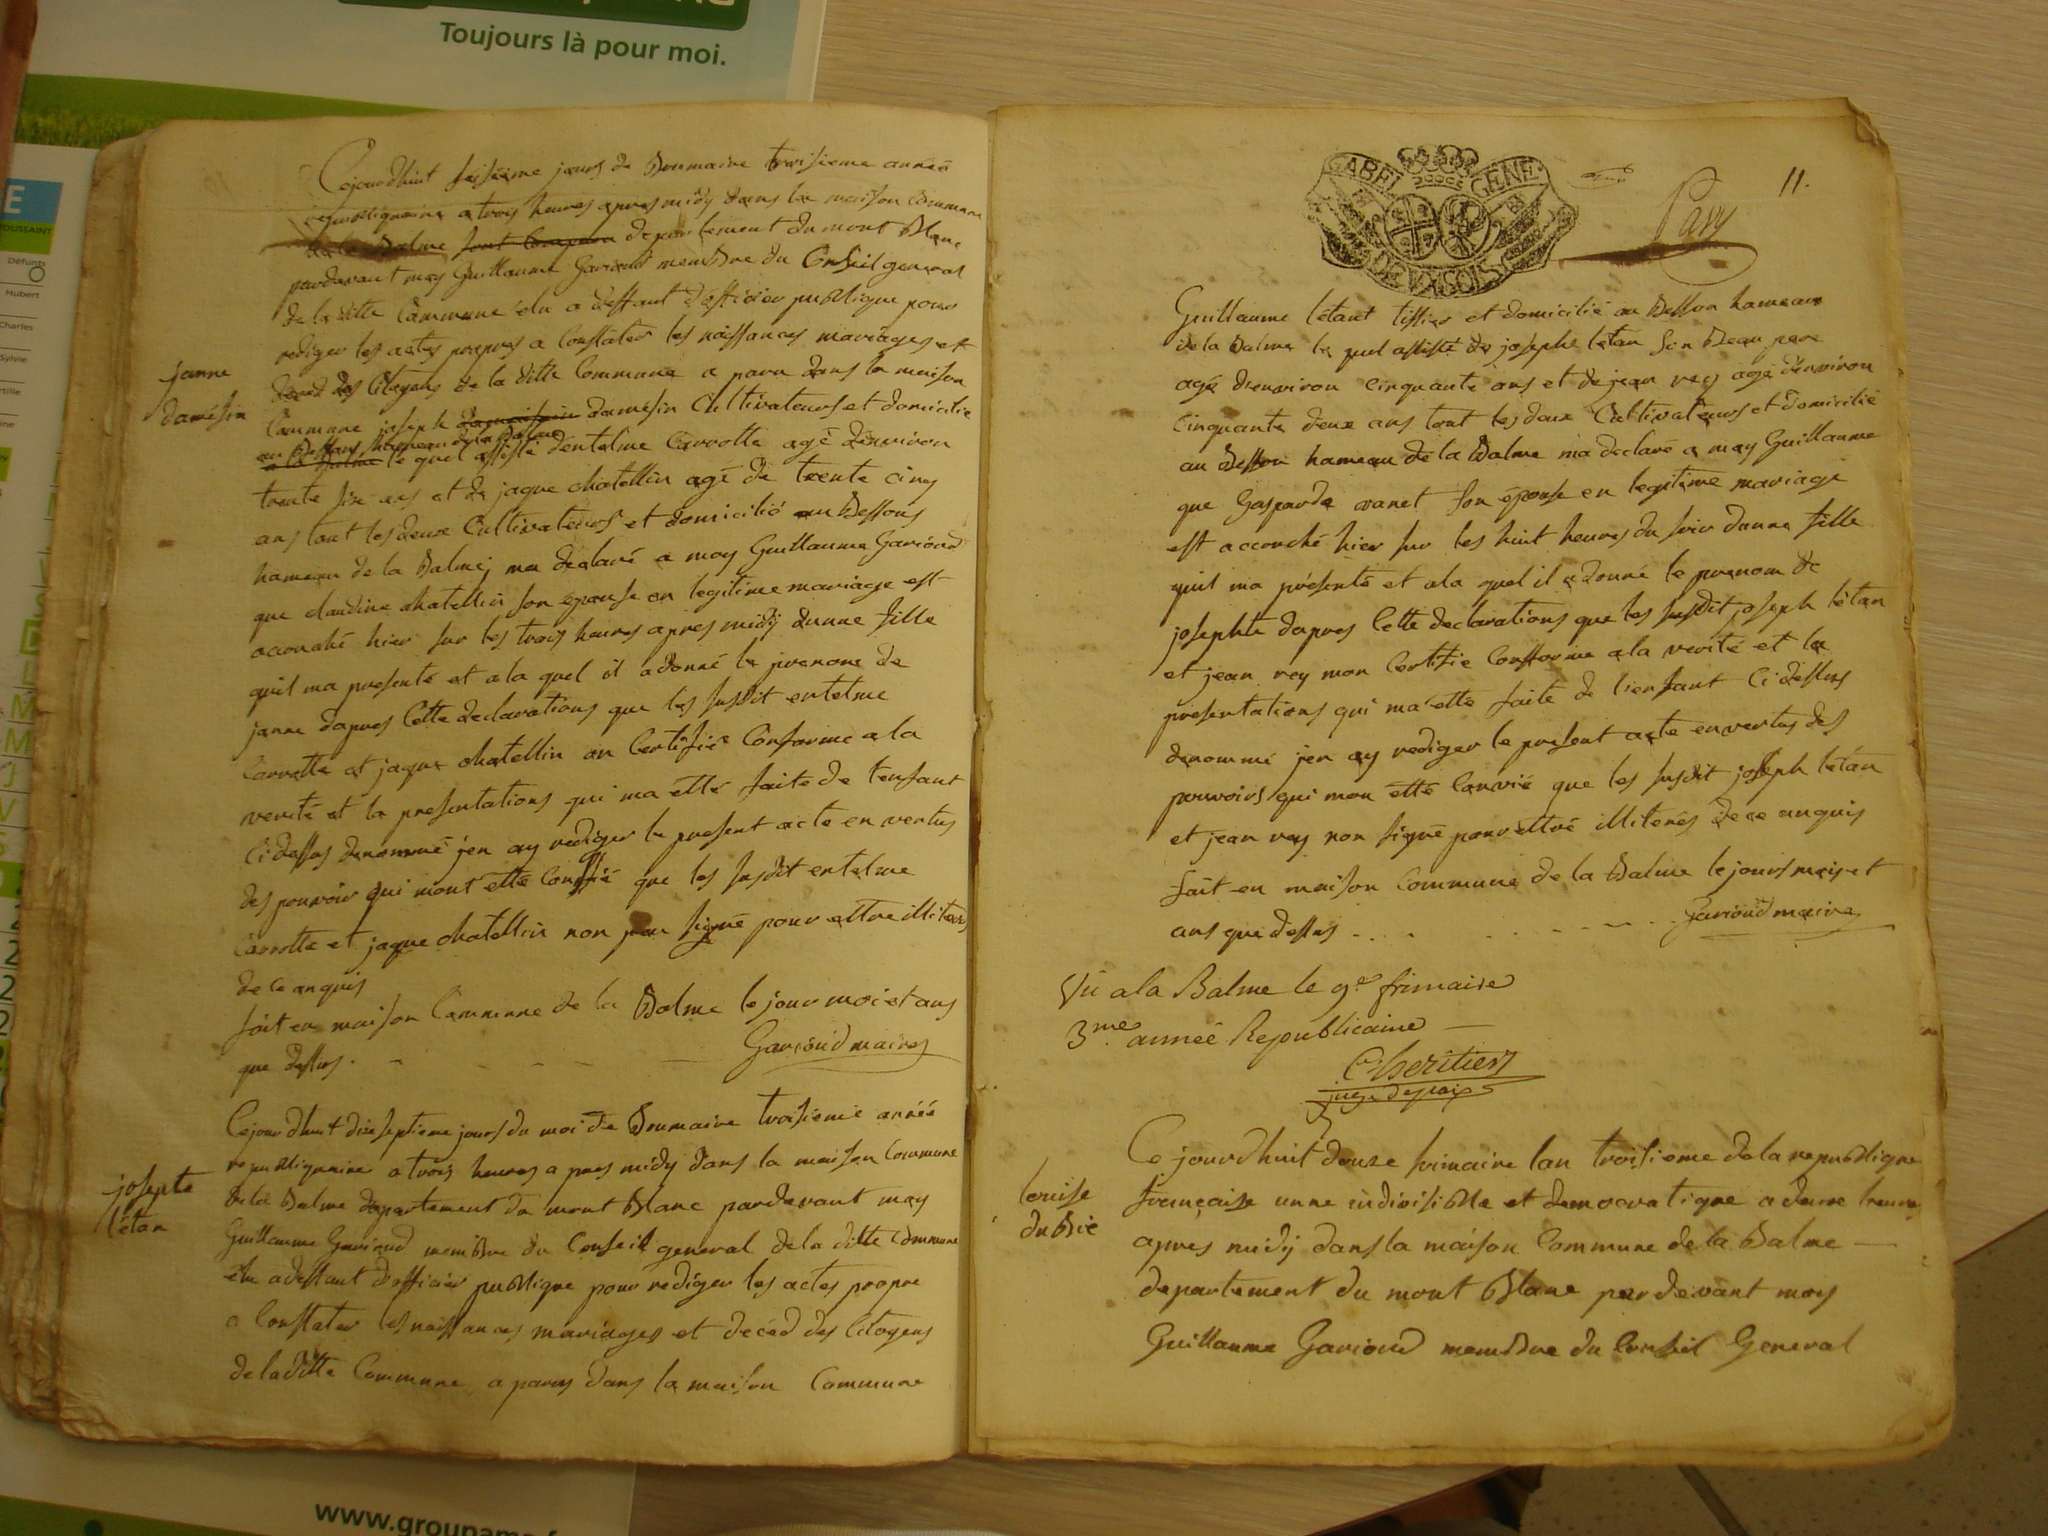 Toujours là pour moi.
E
TOUSSAINT
Défunts
Hubert
Charles
Sylvie
Cejourdhuit seisieme jours de Brumaire troisieme année
republiquaine a trois heures apres midy dans la maison Commune
de la Balme departement du mont Blanc
pardevant moy Guillaume Garioud membre du Conseil general
de la ditte Commune élu a deffaut dofficier publique pour
rediger les actes propres a Constater les naissances mariages et
deced des Citoyens de la ditte Commune a paru dans la maison
janne
damésin
Commune joseph damesin Cultivateurs et domicilié
au Bessons hameau de la Balme
a la Balme le quel assisté dentelme Carrotte agé denviron
trente six ans et de jaque chatellin agé de trente cinq
ans tout les deux Cultivateurs et domicilié au Bessons
hameau de la Balme, ma declaré a moy Guillaume Garioud
que claudine chatellin son épouse en legitime mariage est
accouché hier sur les trois heures apres midy dunne fille
quil ma presenté et a la quel il a donné le prenom de
janne dapres Cette declarations que les susdit entelme
Carrotte et jaque chatellin on Certifié Conforme a la
verité et la presentations qui ma etté faite de lenfant
Cidessus denommé jen ay rediger le present acte en vertus
des pouvoir qui mont etté Conffié que les susdit entelme
Carrotte et jaque chatellin non pas signé pour ettre illiterés
de ce anquis
fait en maison Commune de la Balme le jour moi et ans
que dessus. Garioud maire
Cejourdhuit dixseptieme jours du moi de Brumaire troisieme année
republiquaine a trois heures a pres midy dans la maison Commune
josepte
létan
de la Balme departement du mont Blanc pardevant moy
Guillaume Garioud membre du Conseil general de la ditte Commune
élu adeffaut dofficier publique pour rediger les actes propre
a Constater les naissances mariages et deced des Citoyens
de la ditte Commune a parus dans la maison Commune
GABEL GENE.
DE VXSOIS
11.
Guillaume létant tissier et domicilié au Besson hameau
de la Balme le quel assisté de joseph létan son Beau pere
agé denviron cinquante ans et de jean rey agé denviron
Cinquante deux ans tout les deux Cultivateurs et domicilié
au Besson hameau de la Balme ma declaré a moy Guillaume
que Gasparde vanet son épouse en legitime mariage
est accouché hier sur les huit heures du soir dunne fille
quil ma présenté et a la quel il a donné le prenom de
josephte dapres Cette declarations que les susdit joseph létan
et jean rey mon Certifié Confforme a la verité et la
presentations qui ma etté faite de lenfant Cidessus
denommé jen ay rediger le present acte en vertus des
pouvoirs qui mon etté Convié que les susdit joseph létan
et jean rey non signé pour ettre illiterés de ce anquis
fait en maison Commune de la Balme le jours mois et
ans que dessus Garioud maire
Vû a la Balme le 9e frimaire
3me. année Republicaine
Lheritier
juge depaix
Ce jourdhuit douze frimaire lan troisieme de la republique
louise
duBié
française unne indivisiblle et democratique a deux heures
apres midy dans la maison Commune de la Balme
departement du mont Blanc par devant moy
Guillaume Garioud membre du Conseil General
www.groupama.f